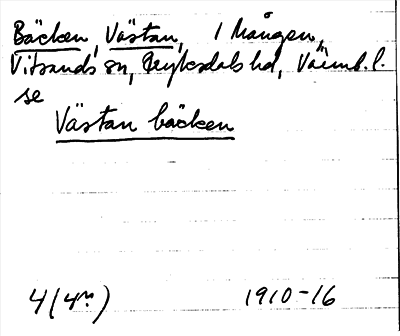 Bäcken, Västan, i Mången,
Vitsands sn, Fryksdals hd, Värml. l.
se
Västan bäcken
4 (4m) 1910-16